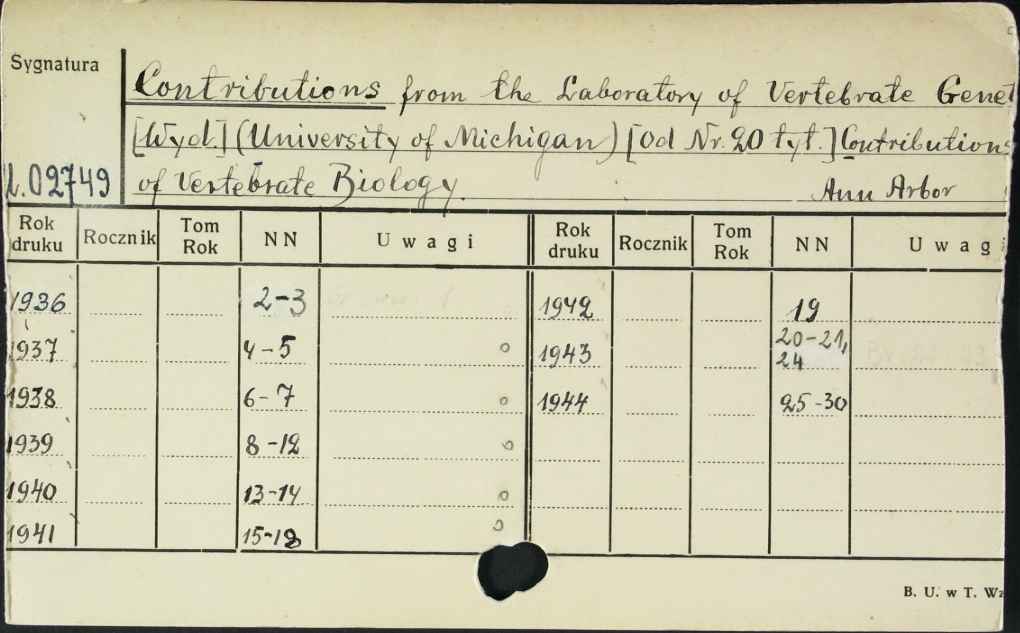 Sygnatura
Contributions from the Laboratory of Vertebrate Genet
[Wyd.] (University of Michigan) [Od Nr. 20 tyt.] Contributions
02749 of Vertebrate Biology. Ann Arbor
Rok druku Rocznik Tom Rok NN Uwagi Rok druku Rocznik Tom Rok NN Uwagi
1936 2-3 1942 19
1937 4-5 1943 20-21, 24
1938 6-7 1944 25-30
1939 8-12
1940 13-14
1941 15-18
B. U. w T.